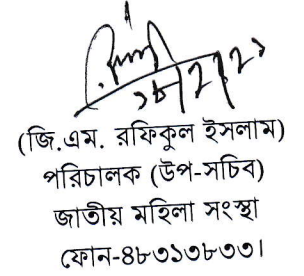 (জি.এম. রফিকুল ইসলাম)
পরিচালক (উপ-সচিব)
জাতীয় মহিলা সংস্থা
ফোন-৪৮৩১৩৮৩৩।